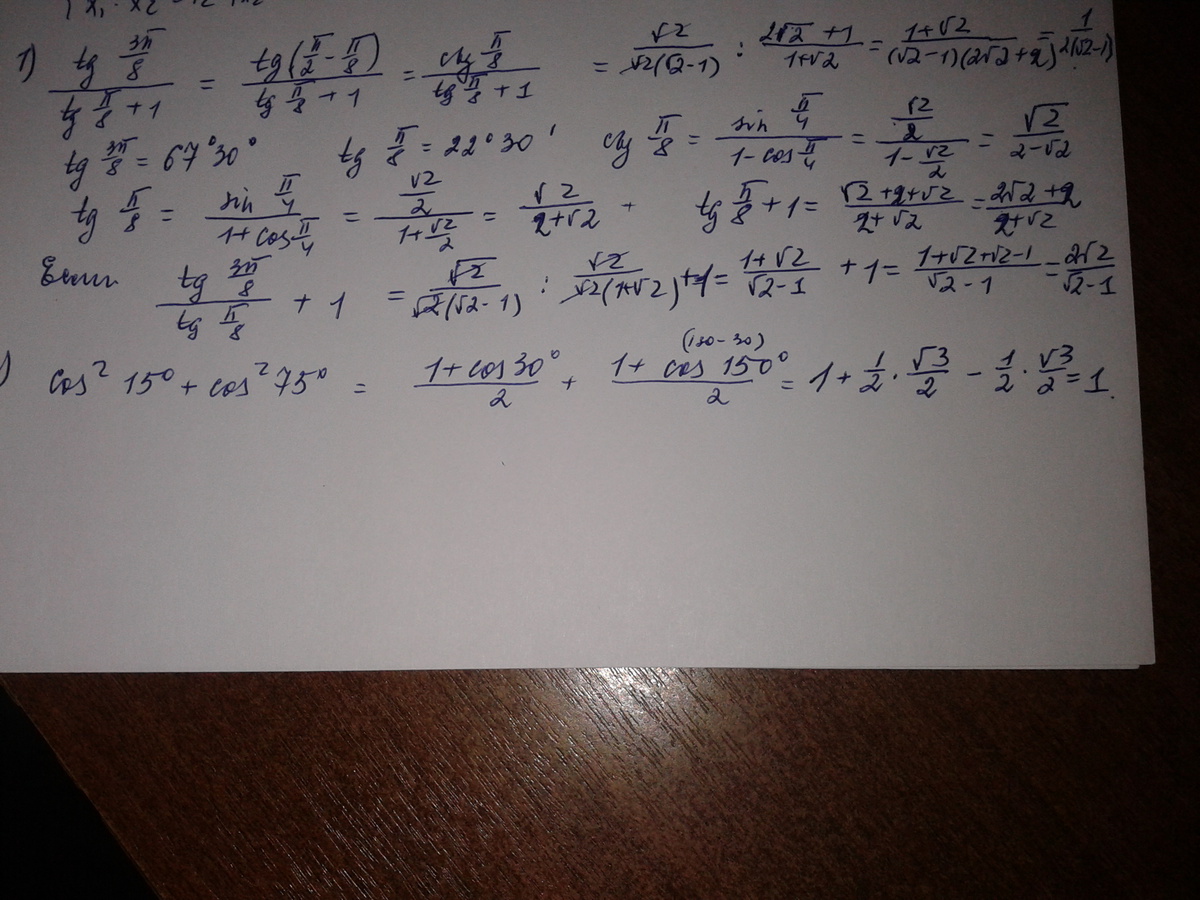 1) tg 3π/8 / (tg π/8 + 1) = tg(π/2 − π/8) / (tg π/8 + 1) = ctg π/8 / (tg π/8 + 1) = √2 / (√2(√2−1)) : (2√2+1) / (1+√2) = (1+√2) / ((√2−1)(2√2+2)) = 1 / (2(√2−1))
tg 3π/8 = 67°30° tg π/8 = 22°30' ctg π/8 = sin π/4 / (1−cos π/4) = (√2/2) / (1−√2/2) = √2 / (2−√2)
tg π/8 = sin π/4 / (1+cos π/4) = (√2/2) / (1+√2/2) = √2 / (2+√2) tg π/8 + 1 = (√2+2+√2) / (2+√2) = (2√2+2) / (2+√2)
Если tg 3π/8 / tg π/8 + 1 = √2 / (√2(√2−1)) : √2 / (√2(1+√2)) + 1 = (1+√2) / (√2−1) + 1 = (1+√2+√2−1) / (√2−1) = 2√2 / (√2−1)
(180−30)
) cos² 15° + cos² 75° = (1+cos 30°) / 2 + (1+ cos 150°) / 2 = 1 + 1/2 · √3/2 − 1/2 · √3/2 = 1.